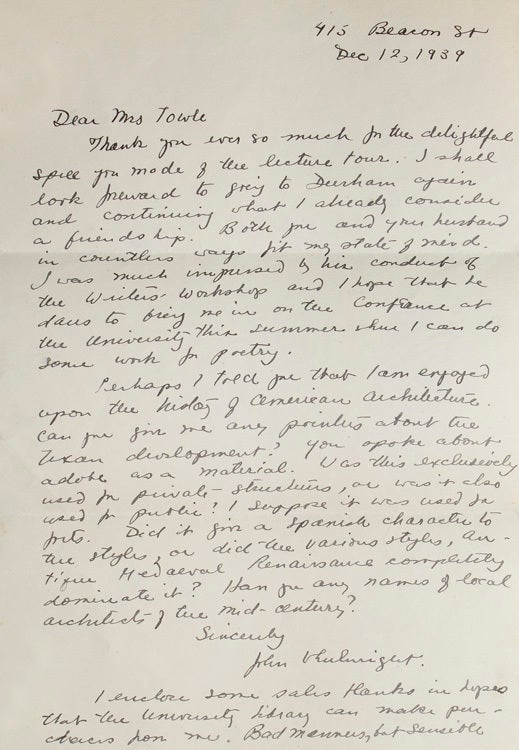 415 Beacon St
Dec 12, 1939
Dear Mrs Towle
Thank you ever so much for the delightful
spill you made of the lecture tour. I shall
look foreward to going to Durham again
and continuing what I already consider
a friendship. Both you and your husband
in countless ways fit my state of mind.
I was much impressed by his conduct of
the Writers Workshop and I hope that he
to bring me in on the Confrance at
the University this summer when I can do
some work for poetry.
Perhaps I told you that I am engaged
upon the history of American architecture.
Can you give me any pointers about the
Texan development? You spoke about
adobe as a material. Was this exclusively
used for private structures, or was it also
used for public? I suppose it was used for
forts. Did it give a Spanish character to
the styles, or did the various styles, An-
tique Mediaeval Renaissance completely
dominate it? Have you any names of local
architects of the mid-century?
Sincerely
John Wheelwright.
I enclose some sales blanks in hopes
that the University library can make pur-
chases from me. Bad manners, but sensible